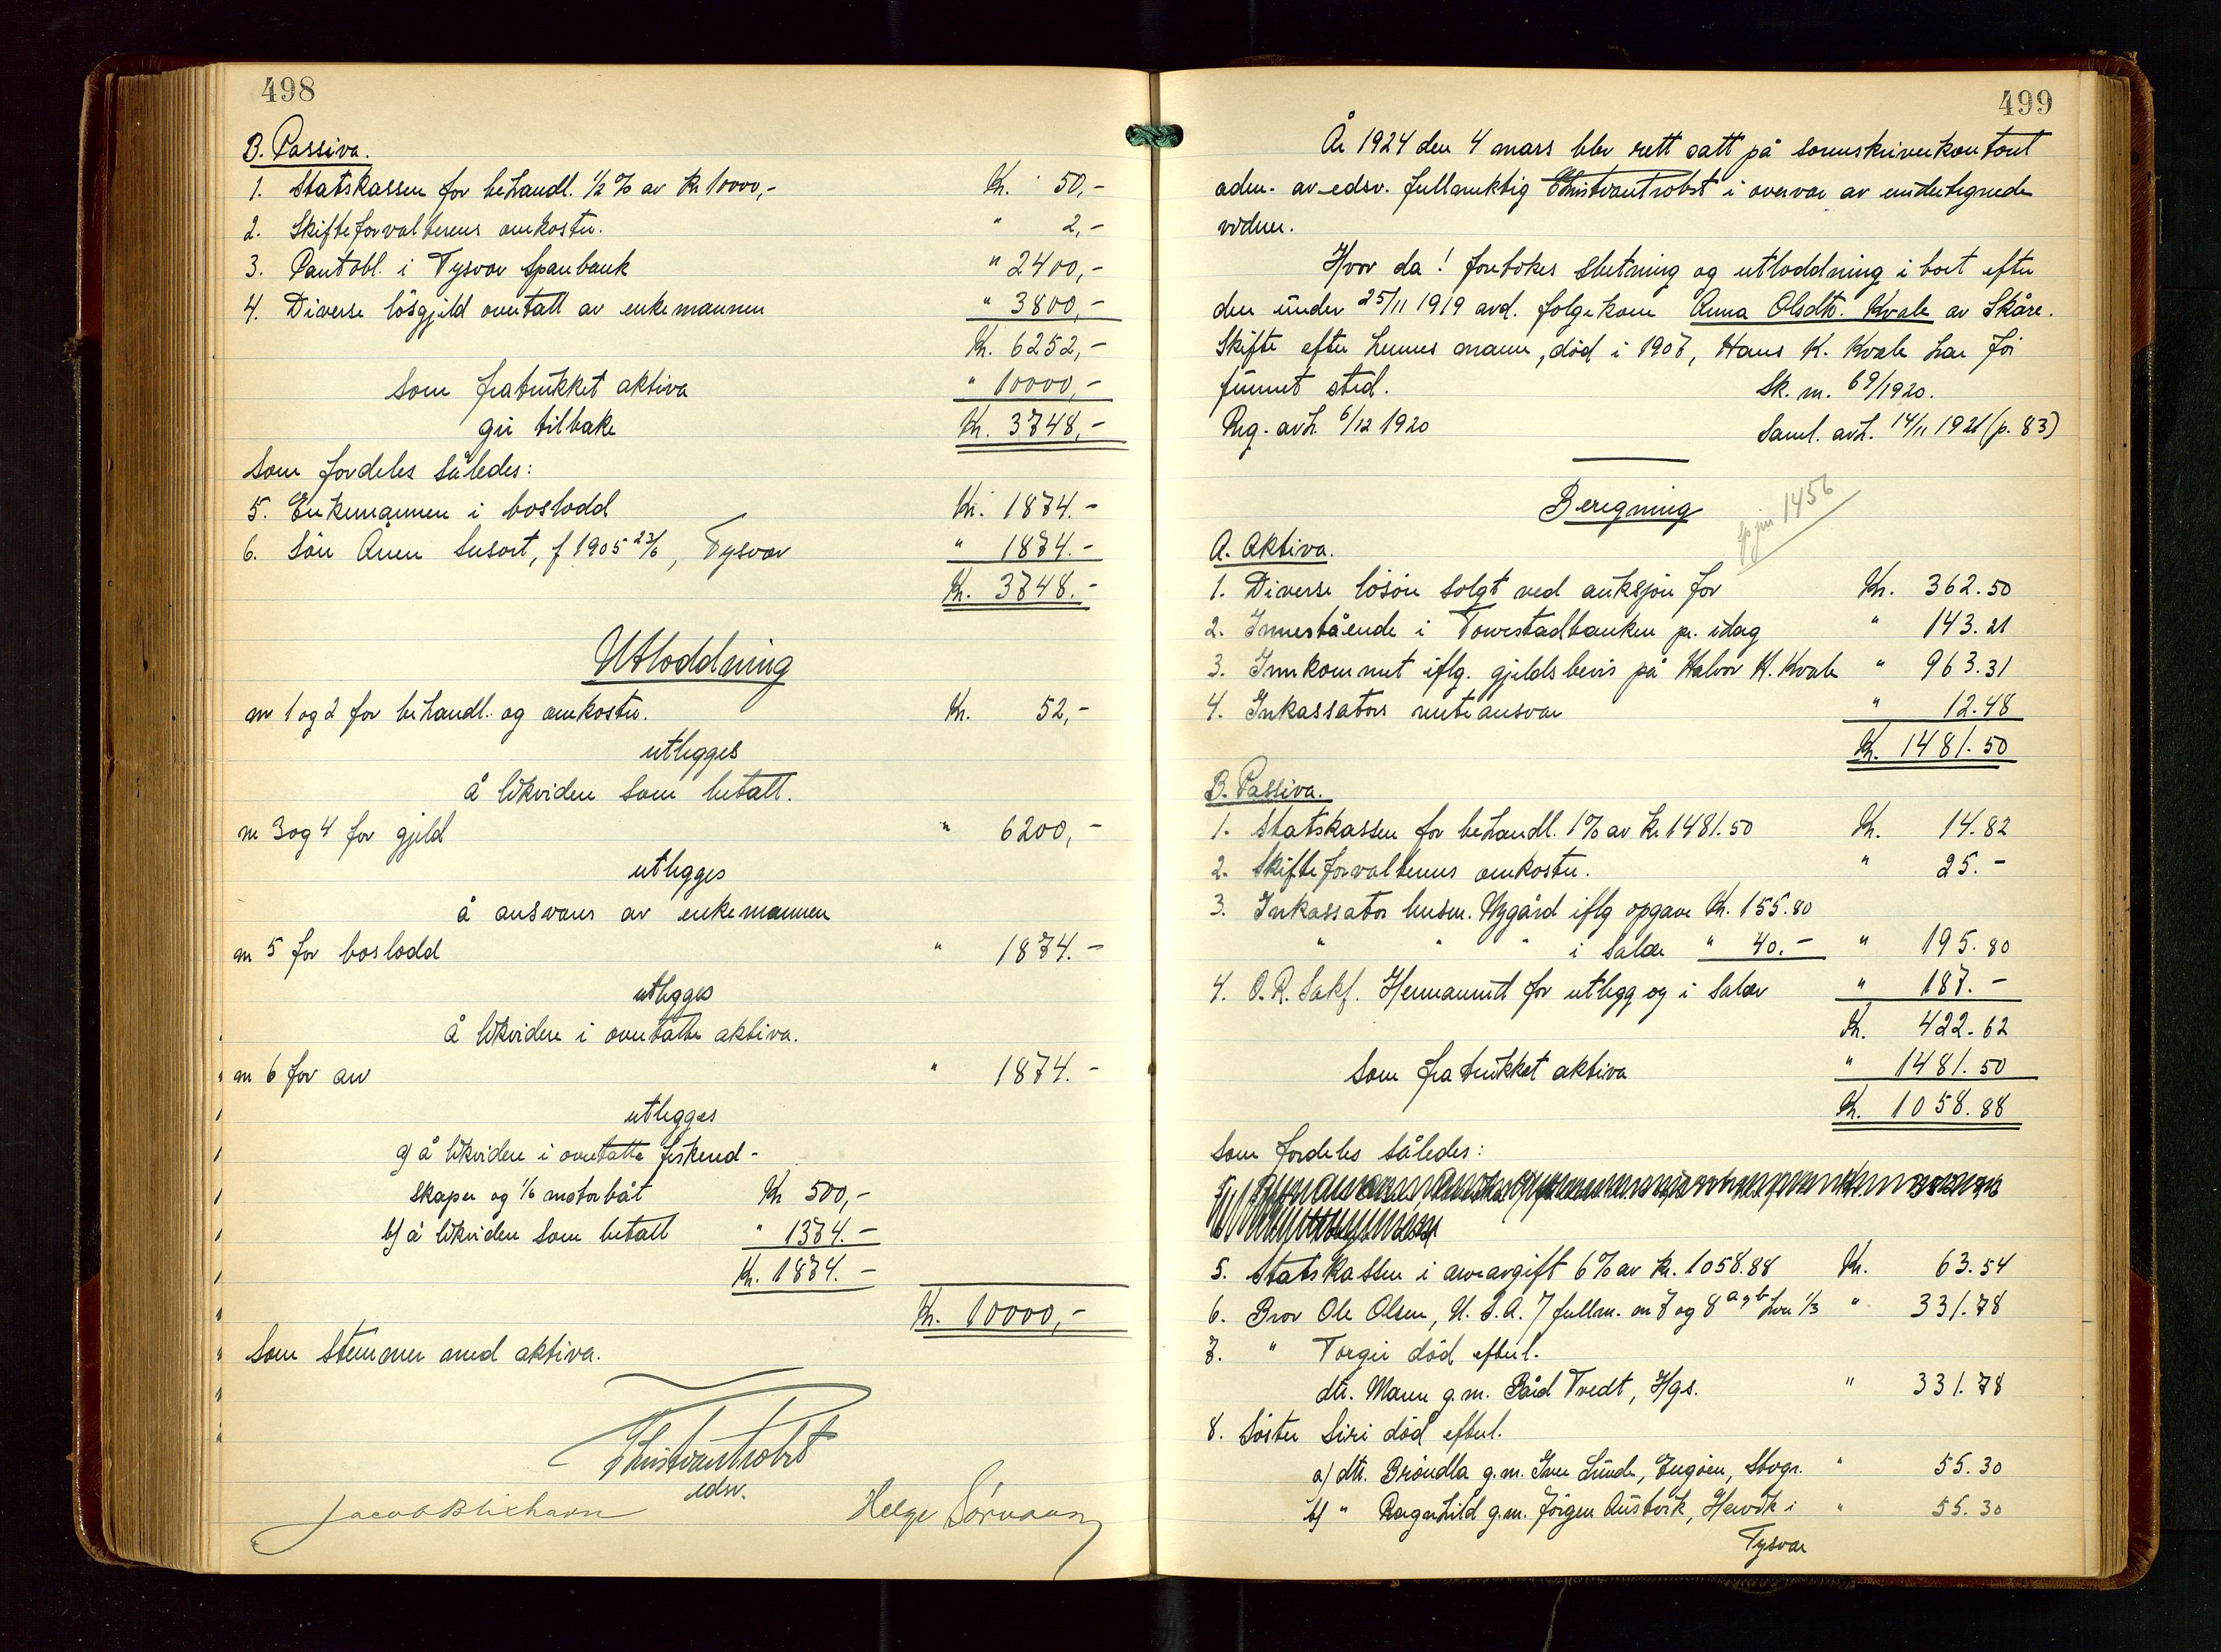 498
B. Passiva.
1. Statskassen for behandl. 1/2 % av kr 10000,- Kr. 50,-
2. Skifteforvalterens omkostn. " 2,-
3. Pantobl. i Tysvær Sparebank " 2400,-
4. Diverse lösgjeld overtatt av enkemannen " 3800,-
Kr. 6252,-
som fratrukket aktiva " 10000,-
gir tilbake Kr. 3748,-
som fordeles således:
5. Enkemannen i boslodd Kr. 1874.-
6. Sön Ånen Susort, f 1905 23/6, Tysvær " 1874.-
Kr. 3748.-
Utloddning
nr 1 og 2 for behandl. og omkostn. Kr. 52,-
utlegges
å likvidere som betalt.
nr 3 og 4 for gjeld " 6200,-
utlegges
å ansvares av enkemannen
nr 5 for boslodd " 1874.-
utlegges
å likvidere i overtatte aktiva.
nr 6 for arv " 1874.-
utlegges
a) å likvidere i overtatte fiskered-
skaper og 1/6 motorbåt Kr 500,-
b) å likvidere som betalt " 1374.-
Kr. 1874.-
Kr. 10000,-
som stemmer med aktiva.
edsv.
Jacob Blixhavn Helge Sørvaag
499
År 1924 den 4 mars blev rett satt på sorenskriverkontoret
adm. av edsv. fullmektig i overvær av undertegnede
vidner.
Hvor da! foretokes slutning og utloddning i boet efter
den under 25/11 1919 avd. folgekone Anna Olsdtr. Kvale av Skåre.
Skifte efter hennes mann, död i 1907, Hans K. Kvale har för
funnet sted. Sk. m. 69/1920.
Reg. avh. 6/12 1920 Saml. avh. 14/11 1921 (p. 83)
Beregning
1456
A. Aktiva.
1. Diverse lösöre solgt ved auksjon for Kr. 362.50
2. Innestående i Torvestadbanken pr. idag " 143.21
3. Innkommet iflg. gjeldsbevis på Halvor H. Kvale " 963.31
4. Inkassators renteansvar " 12.48
Kr. 1481.50
B. Passiva.
1. Statskassen for behandl. 1% av kr 1481.50 Kr. 14.82
2. Skifteforvalterens omkostn. " 25.-
3. Inkassator lensm. Nygård iflg opgave Kr. 155.80
" " " i salær " 40.- " 195.80
4. O. R. Sakf. for utlegg og i salær " 187.-
Kr. 422.62
som fratrukket aktiva " 1481.50
Kr. 1058.88
som fordeles således:
5. Statskassen i arveavgift 6% av kr. 1058.88 Kr. 63.54
6. Bror Ole Olsen, U. S. A. / fullm. nr 7 og 8 a og b hver 1/3 " 331.78
7. " Torgeir död efterl.
dtr. Maren g.m. Bård Tvedt, Hgs. " 331.78
8. Söster Siri död efterl.
a) dtr. Bröndla g.m. Iver Lunde, Engöen, Stvgr. " 55.30
b) " Ragnhild g.m. Jörgen Austvik, Hervik i " 55.30
Tysvær